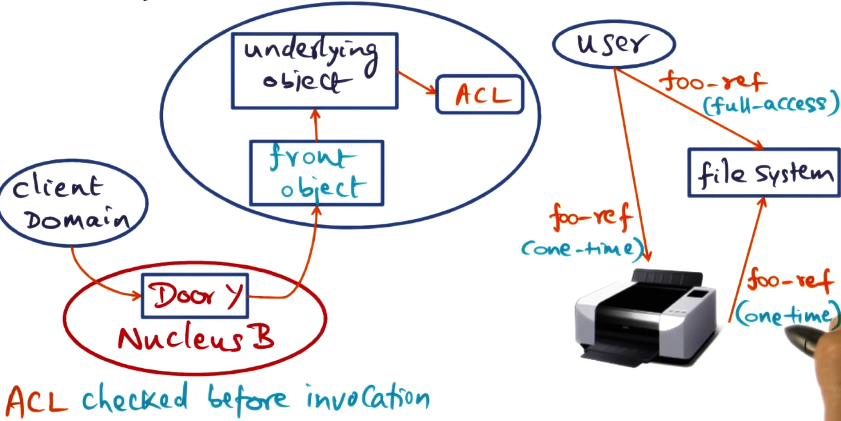 underlying
object
ACL
front
object
client
Domain
Door Y
Nucleus B
ACL checked before invocation
user
foo-ref
(full-access)
file system
foo-ref
(one-time)
foo-ref
(onetime)